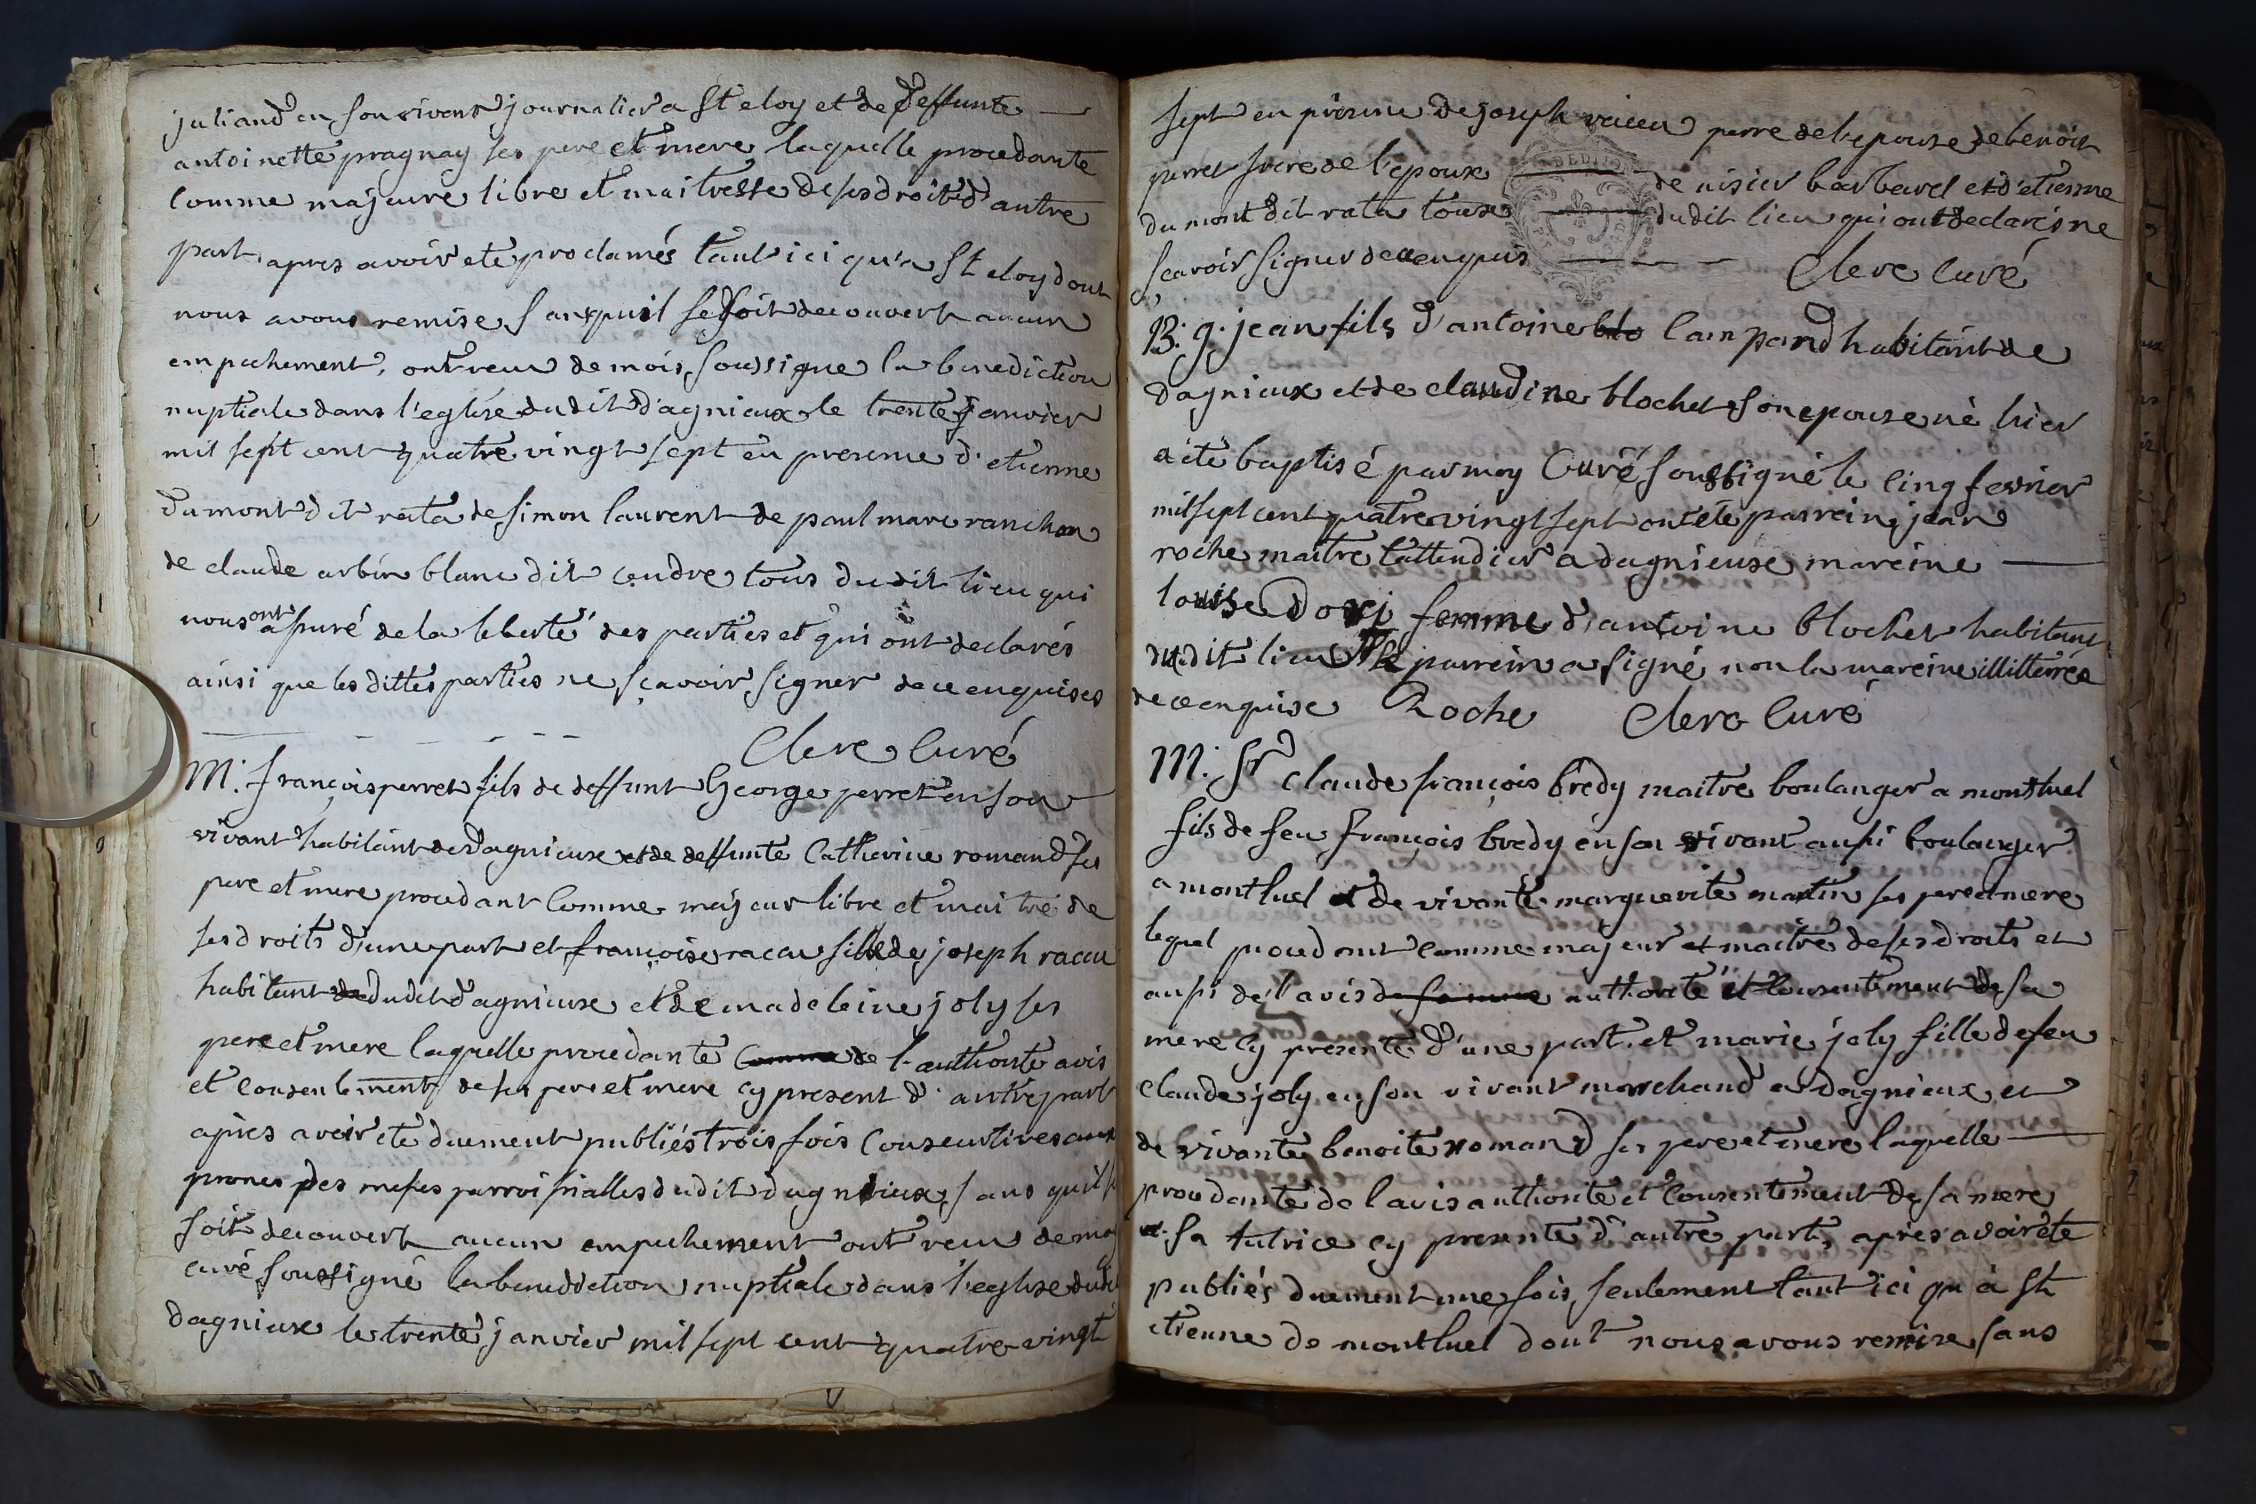 juliand en son vivant journalier a St eloy et de deffunte
antoinette pragnay ses pere et mere laquelle procedante
comme majeure libre et maitresse de ses droits d'autre
part, apres avoir ete proclamés tant ici qu'a St eloy dont
nous avons remise sans qu'il se soit decouvert aucun
empechement, ont reçu de mois soussigne la benediction
nuptiale dans l'eglise dudit dagnieux le trente janvier
mil sept cent quatre vingt sept en presence d'etienne
dumont dit rata de simon laurent de paul marc ranchon
de claude arbin blanc dit cendre tous dudit lieu qui
nous ont assuré de la liberté des parties et qui ont declarés
ainsi que les dittes parties ne sçavoir signer de ce enquises
Clerc Curé
M. françois perret fils de deffunt George perret en son
vivant habitant de dagnieux et de deffunte Catherine romand ses
pere et mere procedant comme majeur libre et maitre de
ses droits d'une part et françoise racu fille de joseph racu
habitant de dudit dagnieux et de madeleine joly ses
pere et mere laquelle procedante comme de l'authorite avis
et consentement de ses pere et mere cy present d'autre part
après avoir ete duement publiés trois fois consecutives aux
prones des messes parroissialles dudit dagnieux sans qu'il se
soit decouvert aucun empechement ont reçu de moy
curé soussigné la benediction nuptiale dans l'eglise dudit
dagnieux le trente janvier mil sept cent quatre vingt
sept en présence de joseph perre de l'epouse de benoit
perret frere de l'epoux de nisier barbaret et d'etienne
dumont dit rata tous dudit lieu qui ont declarés ne
sçavoir signer de ce enquis Clerc Curé
B. g. jean fils d'antoine blo lampand habitant de
dagnieux et de claudine blochet son epouse né hier
a été baptisé par moy Curé soussigné le cinq fevrier
mil sept cent quatre vingt sept ont été parrein jean
roche maitre tattendier a dagnieux mareine
louise femme d'antoine blochet habitant
dudit lieu le parrein a signé non la mareine illitterrée
de ce enquise Roche Clerc Curé
M. Sr claude françois brédy maitre boulanger a montluel
fils de feu françois bredy en son vivant aussi boulanger
a montluel et de vivante marguerite martin ses pere et mere
lequel procedant comme majeur et maitre de ses droits et
aussi de l'avis de sa mere authorité et consentement de sa
mere cy presente d'une part, et marie joly fille de feu
claude joly en son vivant marchand a dagnieux et
de vivante benoite romand ses pere et mere laquelle
procedante de l'avis authorité et consentement de sa mere
et sa tutrice cy presente d'autre part, après avoir été
publiés duement une fois seulement tant ici qu'à St
etienne de montluel dont nous avons remise sans